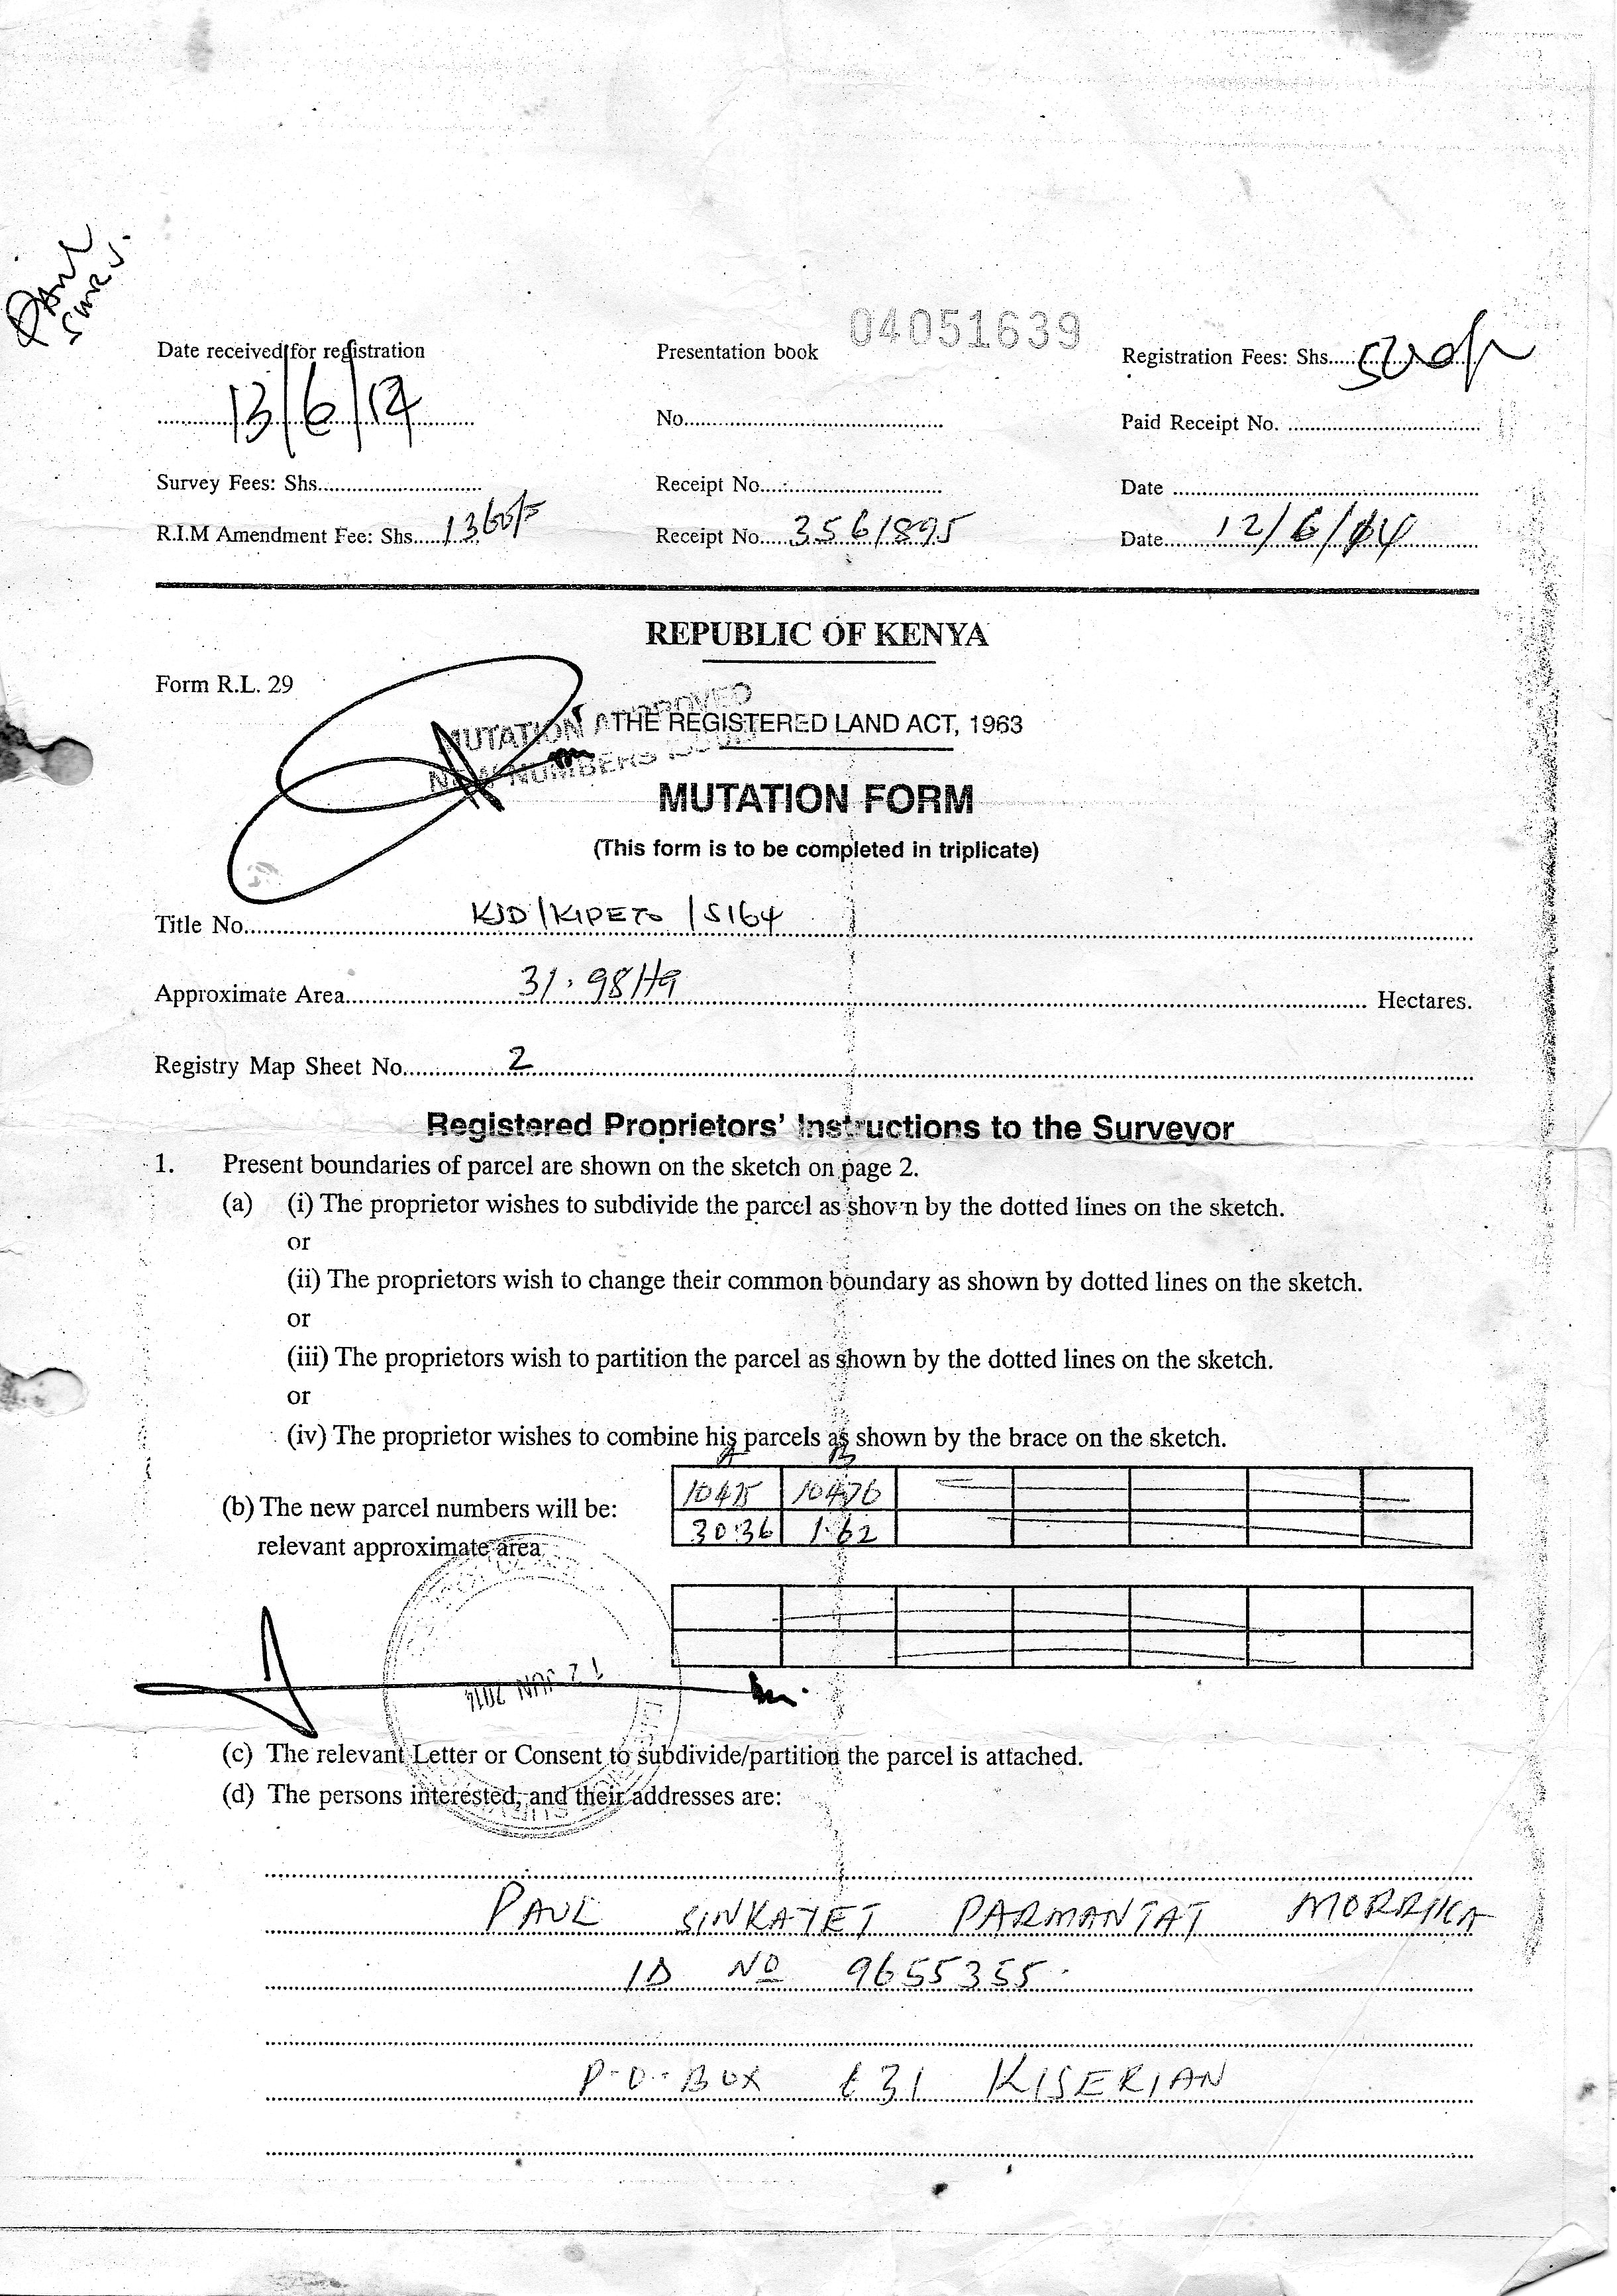 PAUL
04051639
Date received for registration
Presentation book
Registration Fees: Shs.....500/-
13/6/14
No.
Paid Receipt No.
Survey Fees: Shs.
Receipt No.
Date
R.I.M Amendment Fee: Shs. 1360/=
Receipt No. 3561895
Date 12/6/14
REPUBLIC OF KENYA
Form R.L. 29
MUTATION APPROVED
THE REGISTERED LAND ACT, 1963
NEW NUMBERS ISSUED
MUTATION FORM
(This form is to be completed in triplicate)
Title No. KJD/KIPETO/5164
Approximate Area 31.98Ha Hectares.
Registry Map Sheet No. 2
Registered Proprietors' Instructions to the Surveyor
1. Present boundaries of parcel are shown on the sketch on page 2.
(a) (i) The proprietor wishes to subdivide the parcel as shown by the dotted lines on the sketch.
or
(ii) The proprietors wish to change their common boundary as shown by dotted lines on the sketch.
or
(iii) The proprietors wish to partition the parcel as shown by the dotted lines on the sketch.
or
(iv) The proprietor wishes to combine his parcels as shown by the brace on the sketch.
A B
10475 10476
(b) The new parcel numbers will be:
30.36 1.62
relevant approximate area
12 JUN 2014
(c) The relevant Letter or Consent to subdivide/partition the parcel is attached.
(d) The persons interested, and their addresses are:
PAUL SINKAYET PARMANTAT MORRIKA
ID No 9655355
P.O. BOX 31 KISERIAN